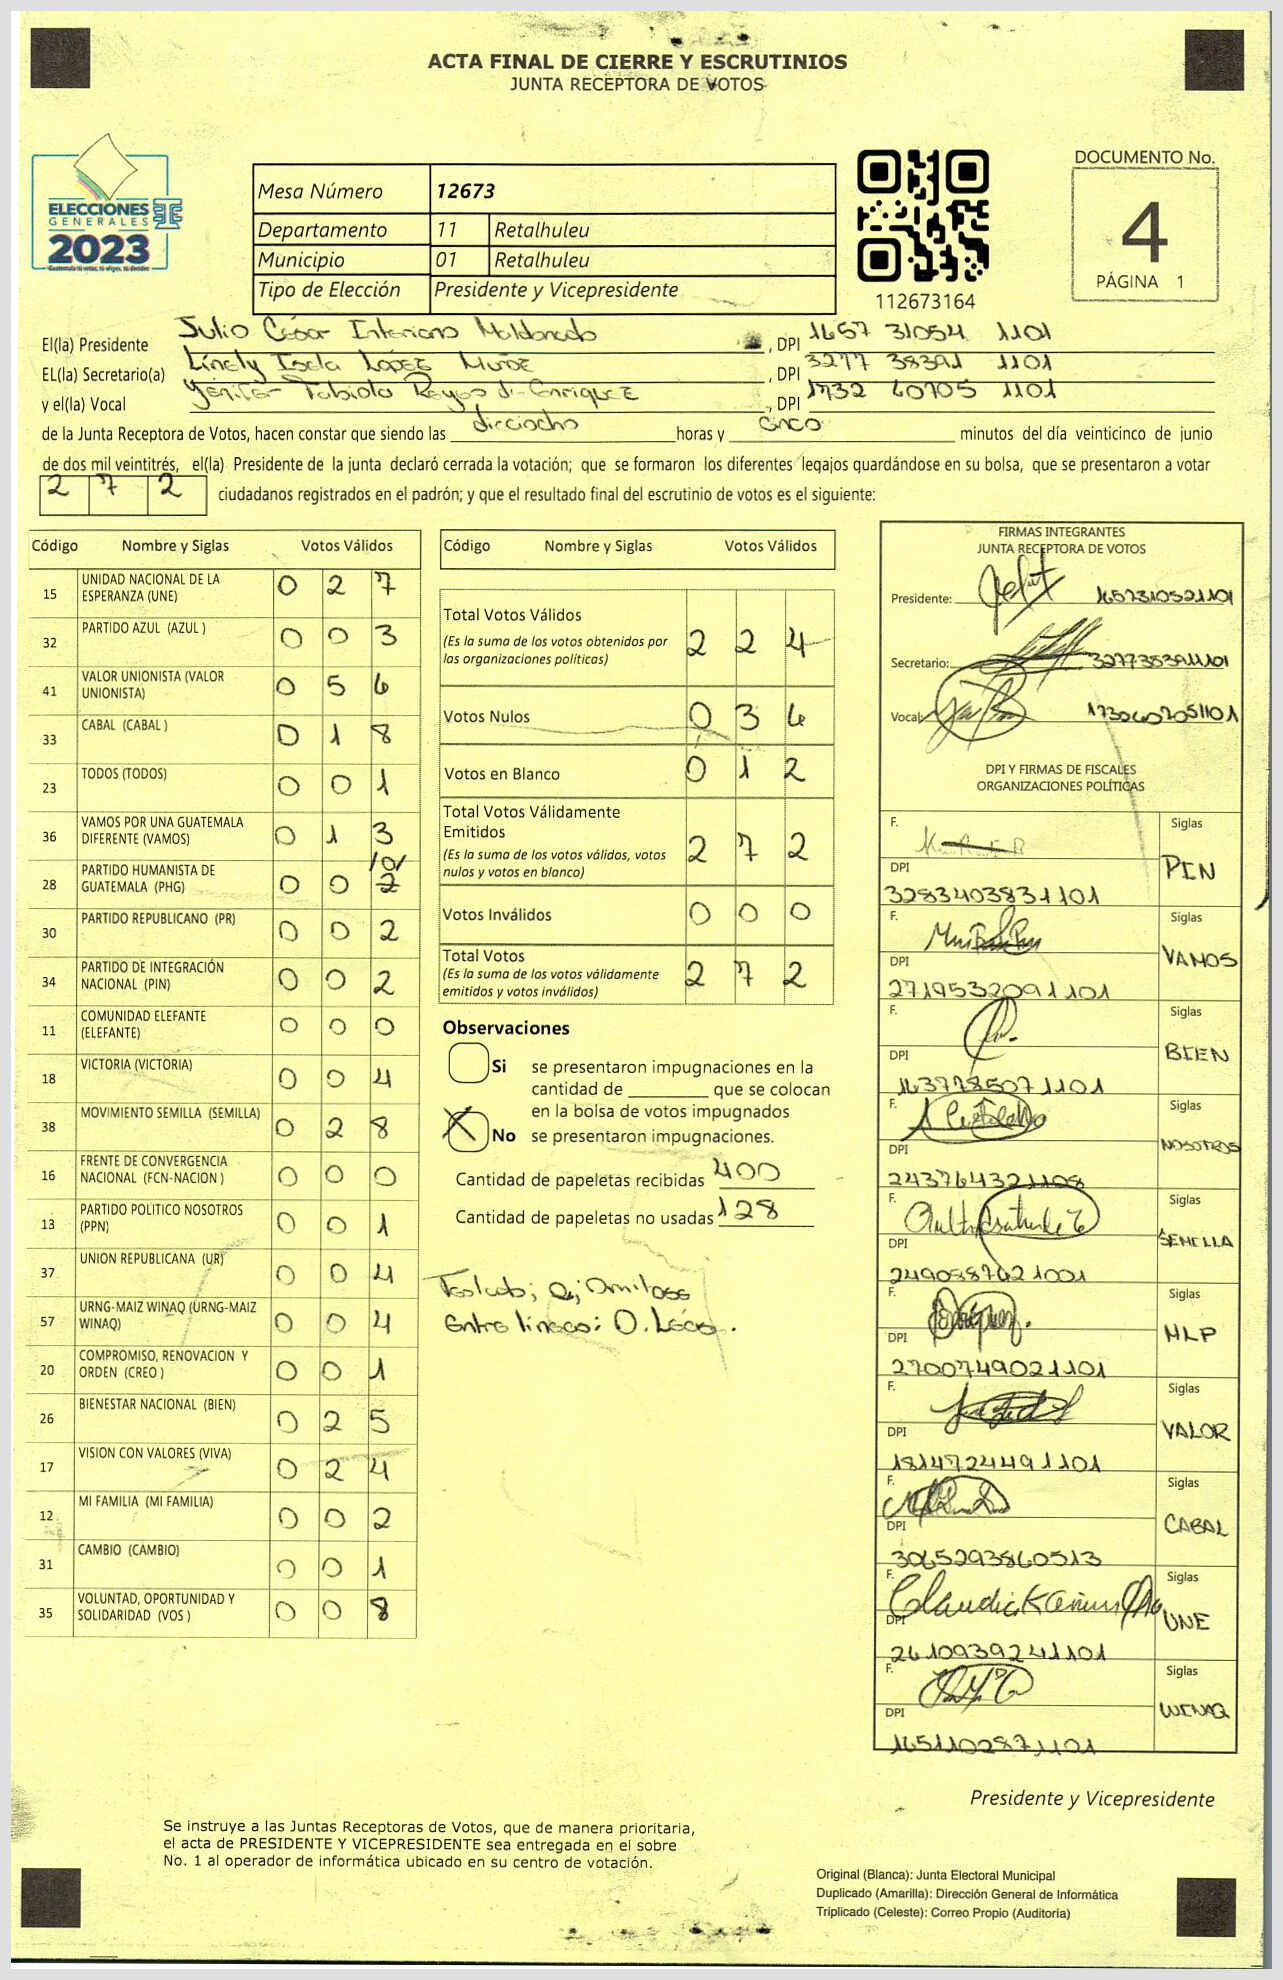 ACTA FINAL DE CIERRE Y ESCRUTINIOS
JUNTA RECEPTORA DE VOTOS
ELECCIONES
GENERALES
2023
Mesa Número 12673
Departamento 11 Retalhuleu
Municipio 01 Retalhuleu
Tipo de Elección Presidente y Vicepresidente
112673164
DOCUMENTO No.
4
PÁGINA 1
El(la) Presidente Julio César Interiano Maldonado, DPI 1657 31054 1101
EL(la) Secretario(a) Linely Isela López Muñoz, DPI 3277 38391 1101
y el(la) Vocal Yenifer Fabiola Reyes de Enriquez, DPI 1732 60705 1101
de la Junta Receptora de Votos, hacen constar que siendo las dieciocho horas y cinco minutos del día veinticinco de junio
de dos mil veintitrés, el(la) Presidente de la junta declaró cerrada la votación; que se formaron los diferentes legajos guardándose en su bolsa, que se presentaron a votar
2 7 2 ciudadanos registrados en el padrón; y que el resultado final del escrutinio de votos es el siguiente:
Código Nombre y Siglas Votos Válidos
15 UNIDAD NACIONAL DE LA ESPERANZA (UNE) 0 2 7
32 PARTIDO AZUL (AZUL ) 0 0 3
41 VALOR UNIONISTA (VALOR UNIONISTA) 0 5 6
33 CABAL (CABAL ) 0 1 8
23 TODOS (TODOS) 0 0 1
36 VAMOS POR UNA GUATEMALA DIFERENTE (VAMOS) 0 1 3
28 PARTIDO HUMANISTA DE GUATEMALA (PHG) 0 0 2 /0/
30 PARTIDO REPUBLICANO (PR) 0 0 2
34 PARTIDO DE INTEGRACIÓN NACIONAL (PIN) 0 0 2
11 COMUNIDAD ELEFANTE (ELEFANTE) 0 0 0
18 VICTORIA (VICTORIA) 0 0 4
38 MOVIMIENTO SEMILLA (SEMILLA) 0 2 8
16 FRENTE DE CONVERGENCIA NACIONAL (FCN-NACION ) 0 0 0
13 PARTIDO POLITICO NOSOTROS (PPN) 0 0 1
37 UNION REPUBLICANA (UR) 0 0 4
57 URNG-MAIZ WINAQ (URNG-MAIZ WINAQ) 0 0 4
20 COMPROMISO, RENOVACION Y ORDEN (CREO ) 0 0 1
26 BIENESTAR NACIONAL (BIEN) 0 2 5
17 VISION CON VALORES (VIVA) 0 2 4
12 MI FAMILIA (MI FAMILIA) 0 0 2
31 CAMBIO (CAMBIO) 0 0 1
35 VOLUNTAD, OPORTUNIDAD Y SOLIDARIDAD (VOS ) 0 0 8
Código Nombre y Siglas Votos Válidos
Total Votos Válidos
(Es la suma de los votos obtenidos por las organizaciones políticas) 2 2 4
Votos Nulos 0 3 6
Votos en Blanco 0 1 2
Total Votos Válidamente Emitidos
(Es la suma de los votos válidos, votos nulos y votos en blanco) 2 7 2
Votos Inválidos 0 0 0
Total Votos
(Es la suma de los votos válidamente emitidos y votos inválidos) 2 7 2
Observaciones
Si se presentaron impugnaciones en la
cantidad de ________ que se colocan
en la bolsa de votos impugnados
X No se presentaron impugnaciones.
Cantidad de papeletas recibidas 400
Cantidad de papeletas no usadas 128
Entre lineas: 0. Léase.
FIRMAS INTEGRANTES
JUNTA RECEPTORA DE VOTOS
Presidente: 1657310521101
Secretario: 3277383911101
Vocal: 1732607051101
DPI Y FIRMAS DE FISCALES
ORGANIZACIONES POLÍTICAS
F. Siglas PIN
DPI 3283403831101
F. Siglas VAMOS
DPI 2719532091101
F. Siglas BIEN
DPI 1637785071101
F. Siglas NOSOTROS
DPI 243764321108
F. Siglas SEMILLA
DPI 2490587621001
F. Siglas MLP
DPI 2700749021101
F. Siglas VALOR
DPI 1814724491101
F. Siglas CABAL
DPI 3065293860513
F. Siglas UNE
DPI 2610939241101
F. Siglas WINAQ
DPI 1651102871101
Presidente y Vicepresidente
Se instruye a las Juntas Receptoras de Votos, que de manera prioritaria,
el acta de PRESIDENTE Y VICEPRESIDENTE sea entregada en el sobre
No. 1 al operador de informática ubicado en su centro de votación.
Original (Blanca): Junta Electoral Municipal
Duplicado (Amarilla): Dirección General de Informática
Triplicado (Celeste): Correo Propio (Auditoría)